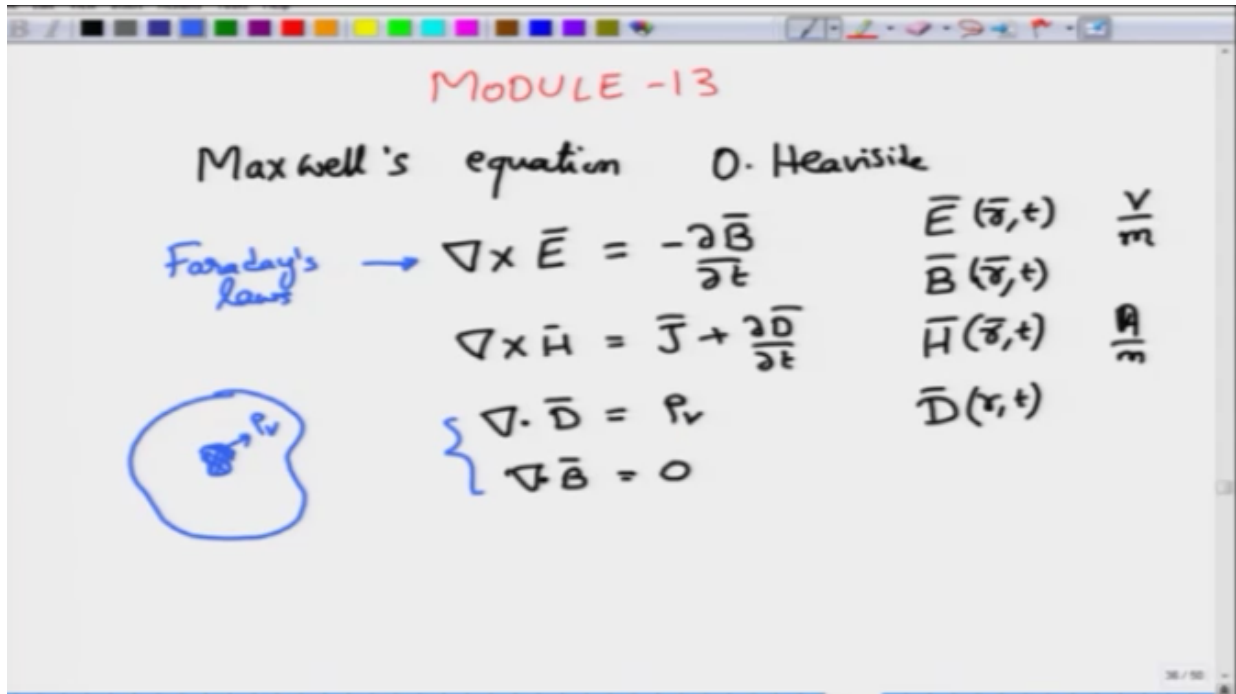 MODULE -13
Maxwell's equation O. Heaviside
Faraday's laws → ∇× E̅ = -∂B̅/∂t
∇× H̅ = J̅ + ∂D̅/∂t
∇· D̅ = ρv
∇· B̅ = 0
E̅ (r̅,t) V/m
B̅ (r̅,t)
H̅ (r̅,t) A/m
D̅ (r,t)
ρv
36 / 50